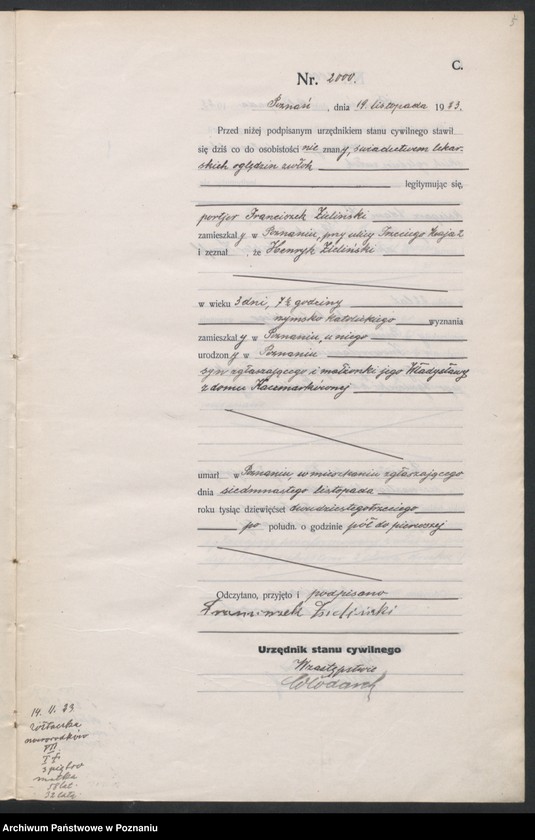 5
C.
Nr. 2000.
Poznań, dnia 19. listopada 1923.
Przed niżej podpisanym urzędnikiem stanu cywilnego stawił
się dziś co do osobistości nie znany, świadectwem lekar-
skich oględzin zwłok
legitymując się,
portjer Franciszek Zieliński
zamieszkały w Poznaniu, przy ulicy Trzeciego Maja 2
i zeznał, że Henryk Zieliński
w wieku 3 dni, 7½ godziny
rzymsko katolickiego wyznania
zamieszkały w Poznaniu, u niego
urodzony w Poznaniu
syn zgłaszającego i małżonki jego Władysławy
z domu Kaczmarkównej
umarł w Poznaniu, w mieszkaniu zgłaszającego
dnia siedmnastego listopada
roku tysiąc dziewięćset dwudziestegotrzeciego
po połudn. o godzinie pół do pierwszej
Odczytano, przyjęto i podpisano
Franciszek Zieliński
Urzędnik stanu cywilnego
W zastępstwie
żółtaczka
noworodków
matka
32 lata
Archiwum Państwowe w Poznaniu